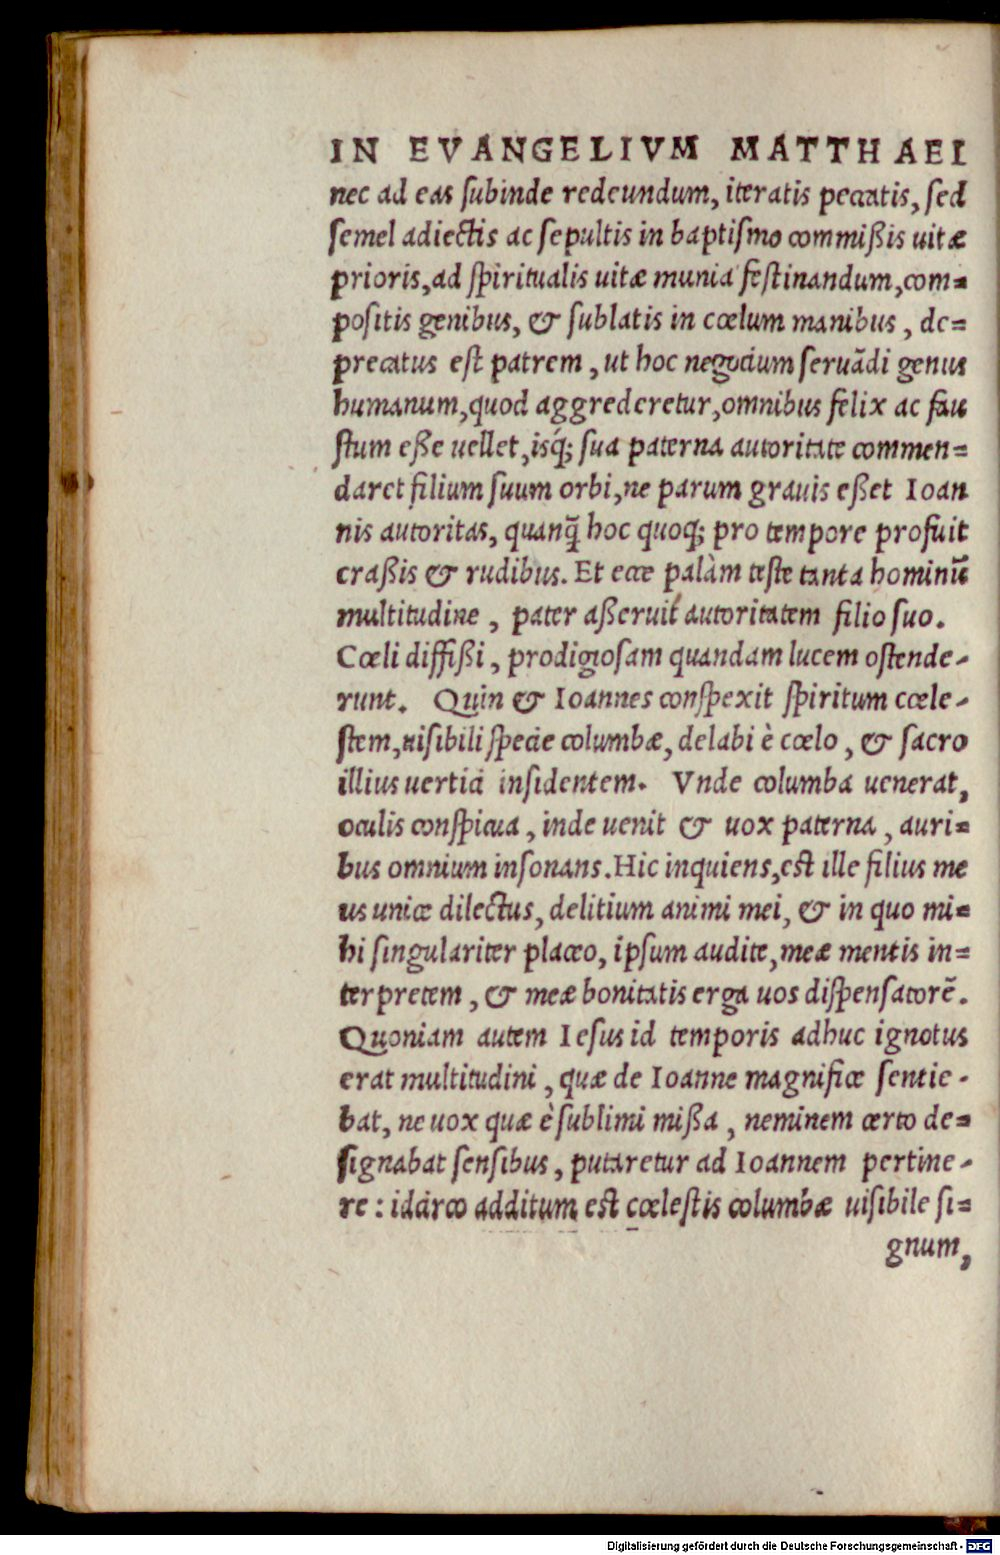 IN EVANGELIVM MATTHAEI
nec ad eas ſubinde redeundum, iteratis peccatis, ſed
ſemel adiectis ac ſepultis in baptiſmo commißis uitæ
prioris, ad ſpiritualis uitæ munia feſtinandum, com=
poſitis genibus, & ſublatis in cœlum manibus, de=
precatus eſt patrem, ut hoc negocium ſeruādi genus
humanum, quod aggrederetur, omnibus felix ac fau
ſtum eße uellet, isq́; ſua paterna autoritate commen=
daret filium ſuum orbi, ne parum grauis eßet Ioan
nis autoritas, quanq̃ hoc quoq; pro tempore profuit
craßis & rudibus. Et ecce palàm teſte tanta hominū
multitudine, pater aßeruit autoritatem filio ſuo.
Cœli diffißi, prodigioſam quandam lucem oſtende-
runt. Quin & Ioannes conſpexit ſpiritum cœle-
ſtem, uiſibili ſpecie columbæ, delabi è cœlo, & ſacro
illius uertici inſidentem. Vnde columba uenerat,
oculis conſpicua, inde uenit & uox paterna, auri=
bus omnium inſonans. Hic inquiens, eſt ille filius me
us unice dilectus, delitium animi mei, & in quo mi=
hi ſingulariter placeo, ipſum audite, meæ mentis in=
terpretem, & meæ bonitatis erga uos diſpenſatorē.
Quoniam autem Ieſus id temporis adhuc ignotus
erat multitudini, quæ de Ioanne magnifice ſentie-
bat, ne uox quæ è ſublimi mißa, neminem certo de=
ſignabat ſenſibus, putaretur ad Ioannem pertine-
re: idcirco additum eſt cœleſtis columbæ uiſibile ſi=
gnum,
Digitalisierung gefördert durch die Deutsche Forschungsgemeinschaft - DFG